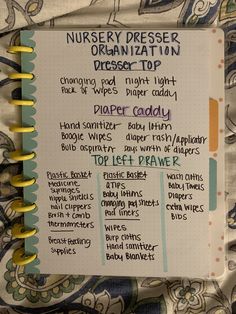 NURSERY DRESSER
ORGANIZATION
DRESSER TOP
changing pad night light
Pack of wipes Diaper caddy
Diaper Caddy
Hand sanitizer Baby lotion
Boogie Wipes Diaper rash/applicator
Bulb aspirator days worth of diapers
TOP LEFT DRAWER
Plastic Basket
Medicine
Syringes
nipple shields
nail clippers
Brush + comb
thermometers
Breastfeeding
Supplies
Plastic Basket
QTIPS
Baby lotions
changing pad sheets
Pad liners
Wipes
Burp cloths
Hand sanitizer
Baby Blankets
Wash cloths
Baby Towels
Diapers
extra Wipes
Bibs